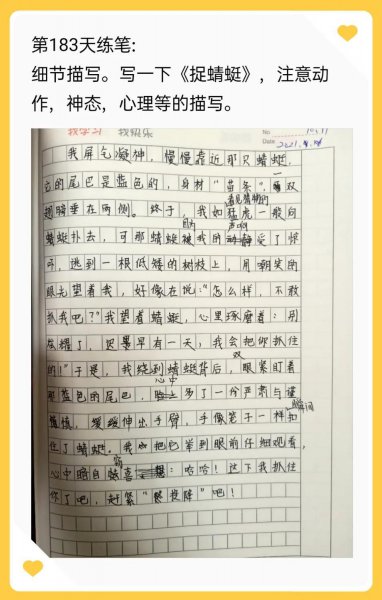 第183天练笔:
细节描写。写一下《捉蜻蜓》，注意动
作，神态，心理等的描写。
我学习 我快乐
No.
Date 2021.
我屏气凝神，慢慢靠近那只蜻蜓，
它的尾巴是蓝色的，身材“苗条”，一双
翅膀垂在两侧。终于，我如看见猎物的猛虎一般向
蜻蜓扑去，可那蜻蜓因为我的声响受了惊
吓，逃到一根低矮的树枝上，用嘲笑的
眼光望着我，好像在说：“怎么样，不敢
抓我吧？”我望着蜻蜓，心里琢磨着：别
炫耀了，迟早有一天，我会把你抓住
的！”于是，我绕到蜻蜓背后，双眼紧盯着
那蓝色的尾巴，心中多了一份严肃与谨
慎，缓缓伸出手臂，手像笼子一样瞬间扣
住了蜻蜓。我把它举到眼前仔细观看，
心中暗自窃喜：哈哈！这下我抓住
你了吧，赶紧“投降”吧！